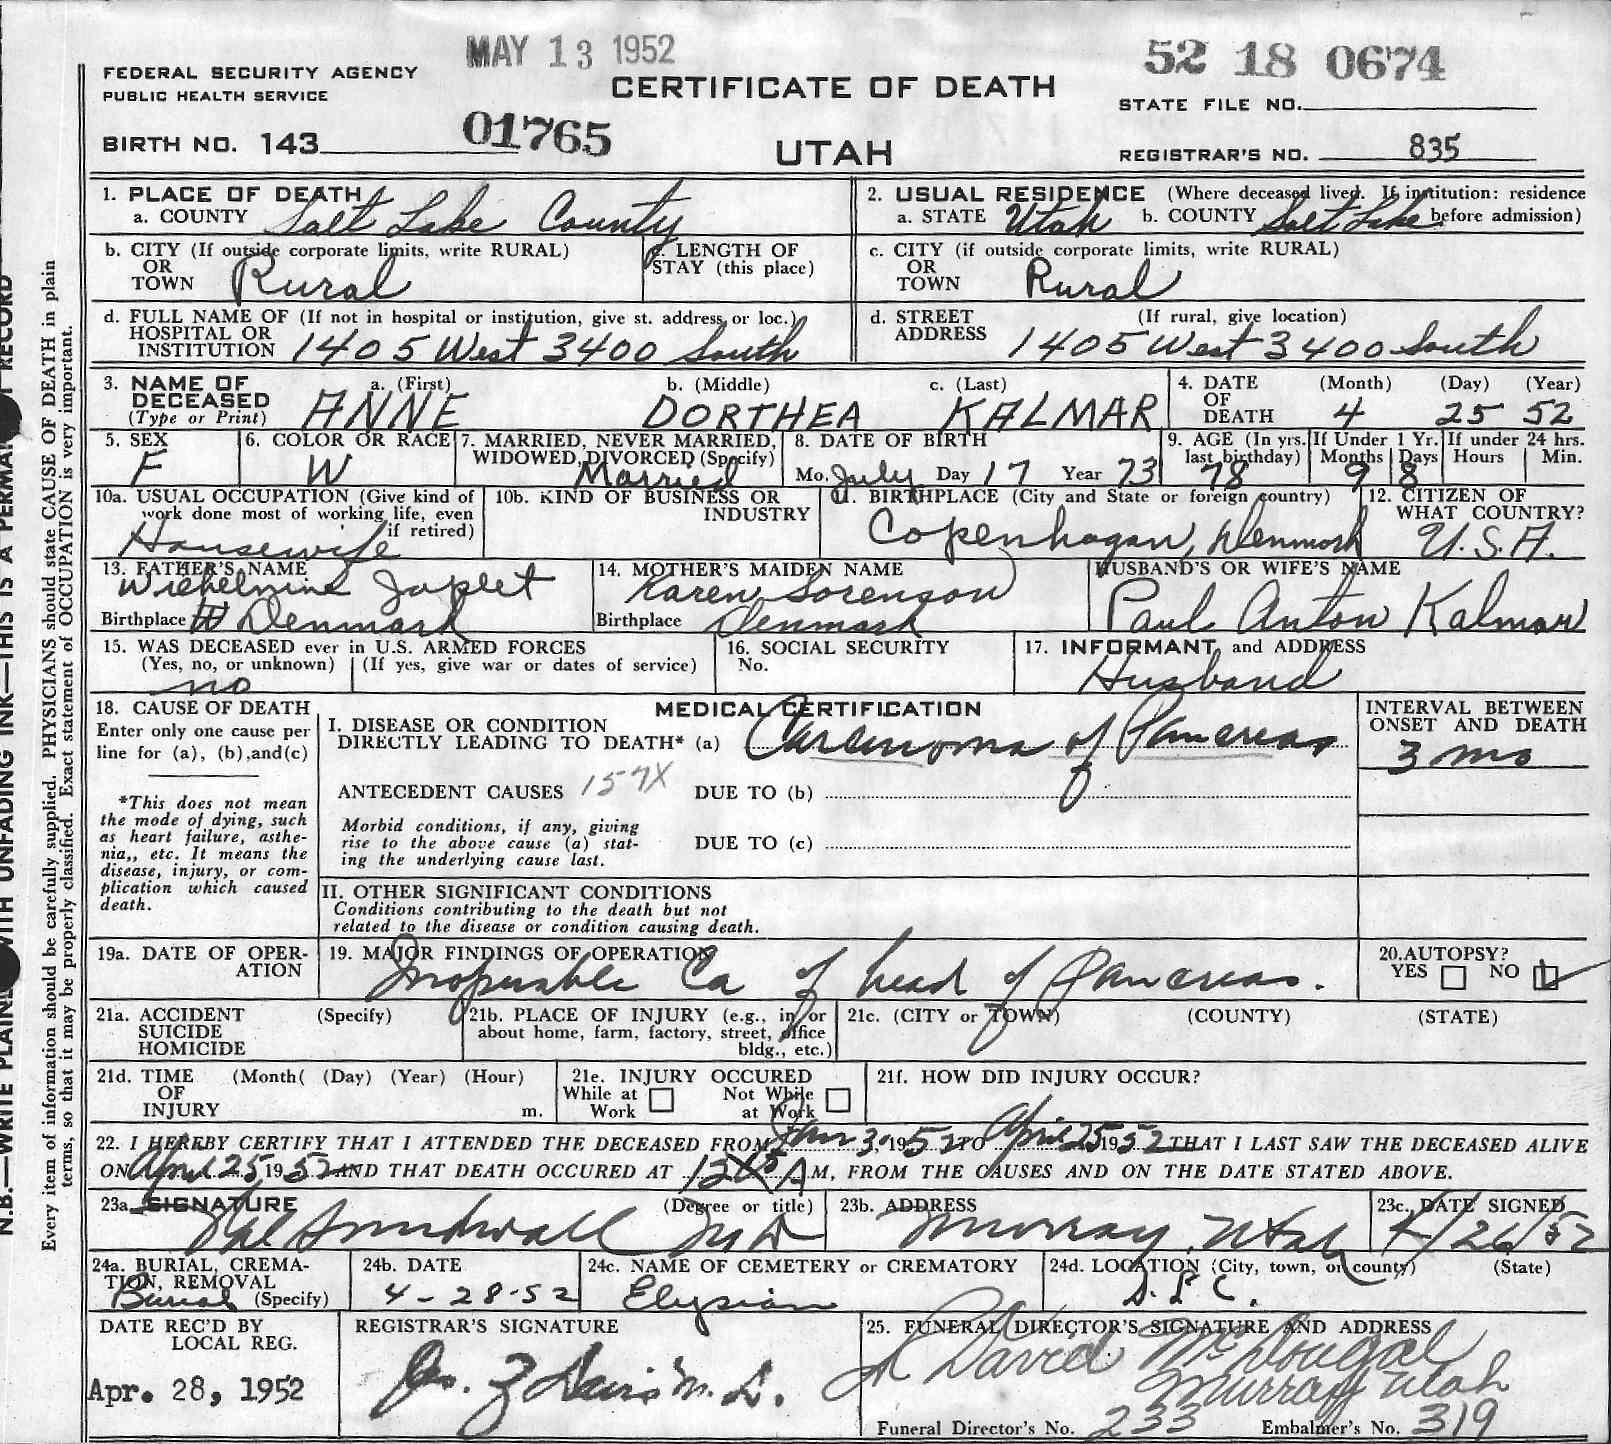 MAY 13 1952
52 18 0674
FEDERAL SECURITY AGENCY
PUBLIC HEALTH SERVICE
CERTIFICATE OF DEATH
STATE FILE NO.
BIRTH NO. 143 01765
UTAH
REGISTRAR'S NO. 835
1. PLACE OF DEATH
a. COUNTY Salt Lake County
2. USUAL RESIDENCE (Where deceased lived. If institution: residence
a. STATE Utah b. COUNTY Salt Lake before admission)
b. CITY (If outside corporate limits, write RURAL)
OR
TOWN Rural
c. LENGTH OF
STAY (this place)
c. CITY (if outside corporate limits, write RURAL)
OR
TOWN Rural
d. FULL NAME OF (If not in hospital or institution, give st. address or loc.)
HOSPITAL OR
INSTITUTION 1405 West 3400 South
d. STREET (If rural, give location)
ADDRESS 1405 West 3400 South
3. NAME OF DECEASED (Type or Print)
a. (First) b. (Middle) c. (Last)
ANNE DORTHEA KALMAR
4. DATE OF DEATH (Month) (Day) (Year)
4 25 52
5. SEX
F
6. COLOR OR RACE
W
7. MARRIED, NEVER MARRIED,
WIDOWED, DIVORCED (Specify)
Married
8. DATE OF BIRTH
Mo. July Day 17 Year 73
9. AGE (In yrs.
last birthday)
78
If Under 1 Yr.
Months Days
9 8
If under 24 hrs.
Hours Min.
10a. USUAL OCCUPATION (Give kind of
work done most of working life, even
if retired)
Housewife
10b. KIND OF BUSINESS OR
INDUSTRY
11. BIRTHPLACE (City and State or foreign country)
Copenhagan, Denmark
12. CITIZEN OF
WHAT COUNTRY?
U.S.A.
13. FATHER'S NAME
Wiehelmine
Birthplace Denmark
14. MOTHER'S MAIDEN NAME
Karen Sorenson
Birthplace Denmark
HUSBAND'S OR WIFE'S NAME
Paul Anton Kalmar
15. WAS DECEASED ever in U.S. ARMED FORCES
(Yes, no, or unknown) (If yes, give war or dates of service)
no
16. SOCIAL SECURITY
No.
17. INFORMANT and ADDRESS
Husband
18. CAUSE OF DEATH
Enter only one cause per
line for (a), (b),and(c)
*This does not mean
the mode of dying, such
as heart failure, asthe-
nia,, etc. It means the
disease, injury, or com-
plication which caused
death.
MEDICAL CERTIFICATION
I. DISEASE OR CONDITION
DIRECTLY LEADING TO DEATH* (a) Carcinoma of Pancreas
INTERVAL BETWEEN
ONSET AND DEATH
3 mo
ANTECEDENT CAUSES 157X DUE TO (b)
Morbid conditions, if any, giving
rise to the above cause (a) stat-
ing the underlying cause last.
DUE TO (c)
II. OTHER SIGNIFICANT CONDITIONS
Conditions contributing to the death but not
related to the disease or condition causing death.
19a. DATE OF OPER-
ATION
19. MAJOR FINDINGS OF OPERATION
Inoperable Ca of head of Pancreas.
20. AUTOPSY?
YES NO
21a. ACCIDENT (Specify)
SUICIDE
HOMICIDE
21b. PLACE OF INJURY (e.g., in or
about home, farm, factory, street, office
bldg., etc.)
21c. (CITY or TOWN) (COUNTY) (STATE)
21d. TIME (Month( (Day) (Year) (Hour)
OF
INJURY m.
21e. INJURY OCCURED
While at Work Not While at Work
21f. HOW DID INJURY OCCUR?
22. I HEREBY CERTIFY THAT I ATTENDED THE DECEASED FROM Jan 3, 1952 TO April 25 1952 THAT I LAST SAW THE DECEASED ALIVE
ON April 25 1952 AND THAT DEATH OCCURED AT A M, FROM THE CAUSES AND ON THE DATE STATED ABOVE.
23a. SIGNATURE (Degree or title)
Val Sundwall MD
23b. ADDRESS
Murray, Utah
23c. DATE SIGNED
4/26/52
24a. BURIAL, CREMA-
TION, REMOVAL
Burial (Specify)
24b. DATE
4-28-52
24c. NAME OF CEMETERY or CREMATORY
Elysian
24d. LOCATION (City, town, or county) (State)
S.L.C.
DATE REC'D BY
LOCAL REG.
Apr. 28, 1952
REGISTRAR'S SIGNATURE
Davis M.D.
25. FUNERAL DIRECTOR'S SIGNATURE AND ADDRESS
David McDougal
Murray Utah
Funeral Director's No. 233 Embalmer's No. 319
N.B.—WRITE PLAIN WITH UNFADING INK—THIS IS A PERMA RECORD
Every item of information should be carefully supplied. PHYSICIANS should state CAUSE OF DEATH in plain
terms, so that it may be properly classified. Exact statement of OCCUPATION is very important.